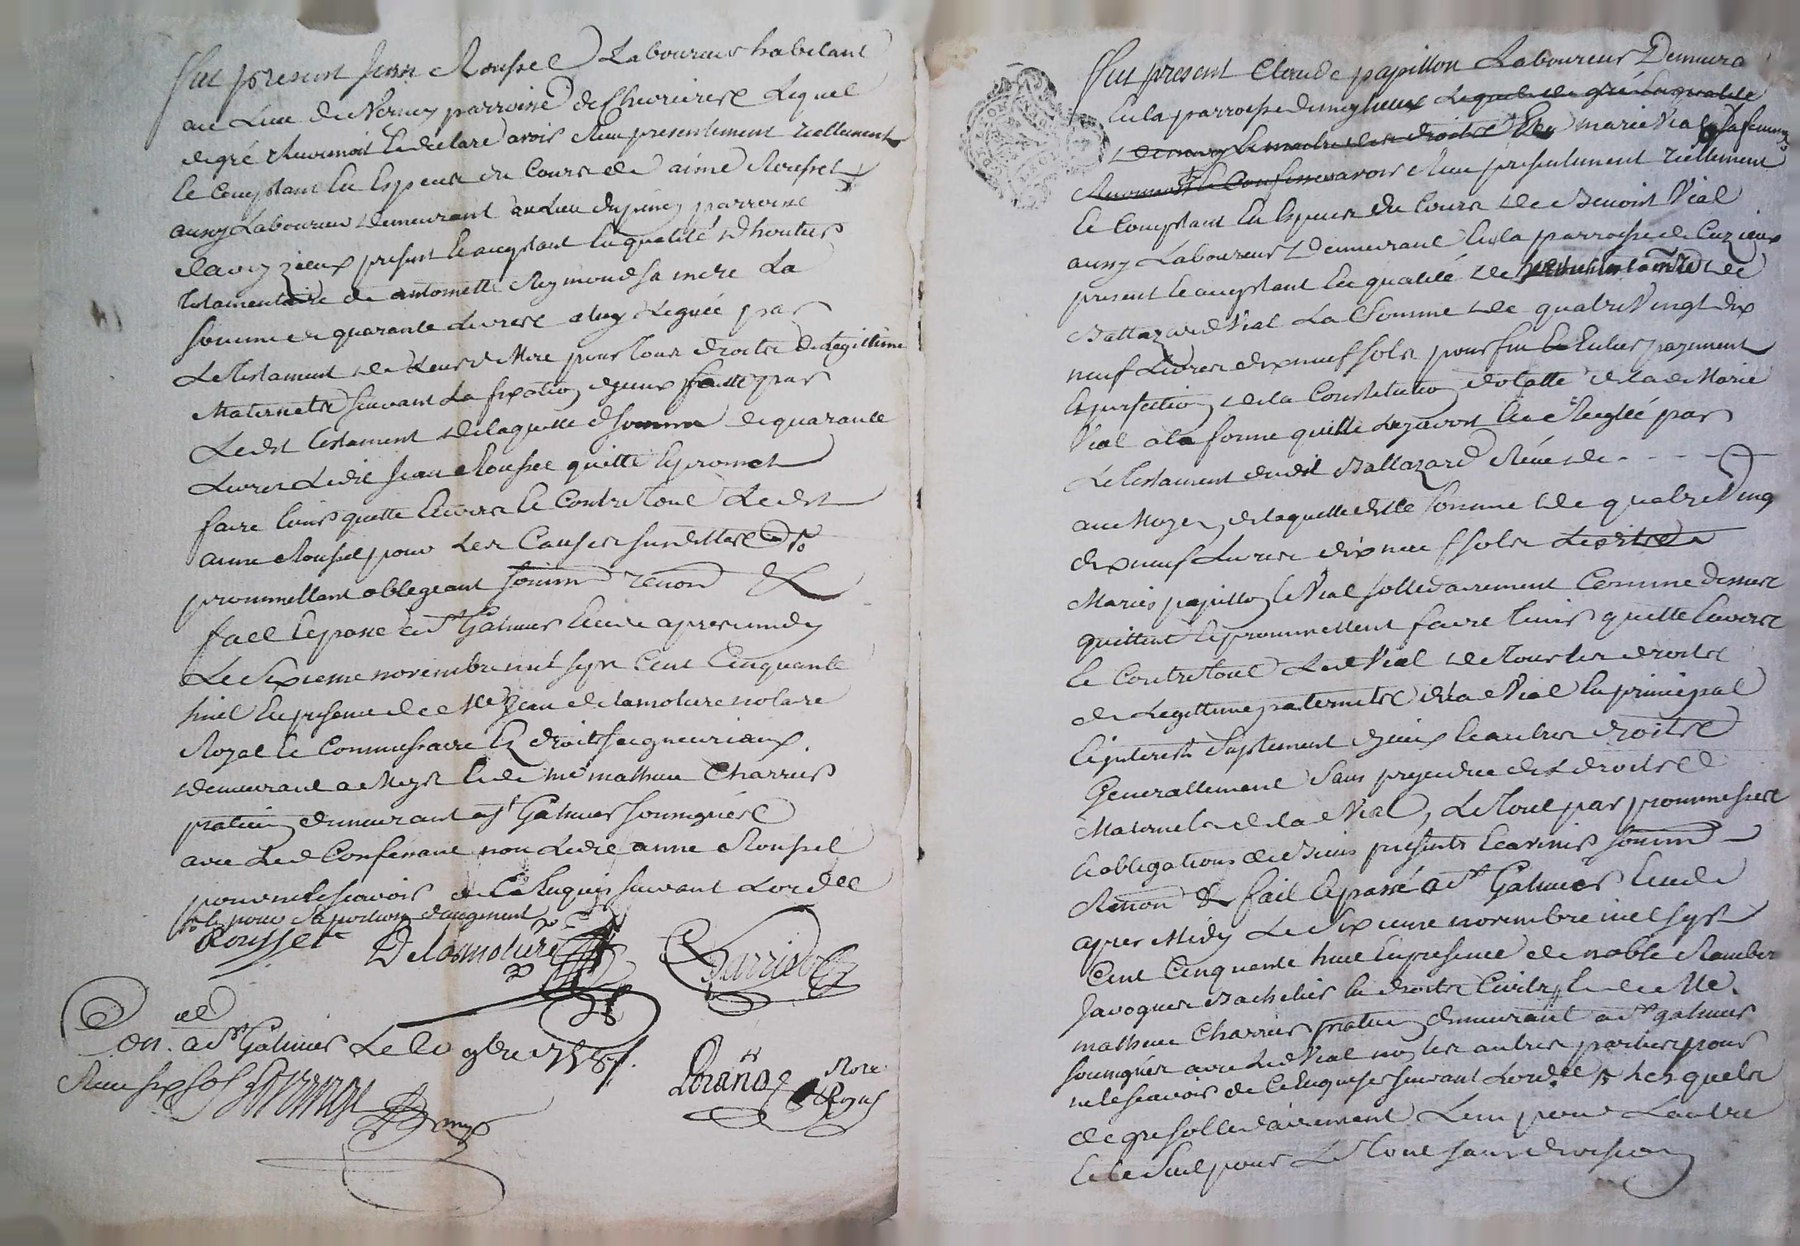 fut present Jean Rousset Laboureur habitant
au Lieu de Nerney parroisse de Chevrieres Lequel
de gré Reconnoit et declare avoir Reçu presentement reellement
et comptant en Especes de Cours de aimé Rousset
aussy Laboureur demeurant au Lieu parroisse
daveyzieux present et acceptant en qualité dheritier
testamentaire de antoinette Reymond sa mere La
somme de quarante Livres a luy Leguée par
Le testament de leurd mere pour tous droits de Legitime
Maternels suivant La fixation dyceux faitte par
Ledit testament de laquelle ditte somme de quarante
Livres Ledit Jean Rousset quitte et promet
faire tenir quitte Envers et Contre tout Ledit
aimé Rousset pour Les Causes susdittes
promettant obligeant soumet renon &
fait et passé a St Galmier Etude apres midy
Le Sixieme novembre mil sept Cent Cinquante
huit En presence de Me Jean delamoture notaire
Royal et Commissaire Es droits seigneuriaux
demeurant a Meys et de me mathieu Charrier
praticien demeurant a St Galmier soussignés
avec Led Confessant non Ledit aimé Rousset
pour ne le scavoir de Ce Enquis suivant Lordce
et pour sa portion daugment
Rousset Delamoture Charrier
Con. a St Galmier Le 20 9bre 1758.
Reçu six sols
Notre
Royal
fut present Claude papillon Laboureur Demeurant
En la parroisse de meylieux Marie Vial sa femme
avoir Reçu presentement reellement
et Comptant En Especes de Cours de Benoist Vial
aussy Laboureur Demeurant En la parroisse de Cuzieux
present et acceptant En qualité de heritier de
Baltazard Vial La Somme de quatre Vingt dix
neuf Livres dix neuf sols pour fin Entier payement
Et perfection de la Constitution dotalle de lade Marie
Vial a la forme quelle Reglée par
Le testament dudit Baltazard
au Moyen de laquelle ditte somme de quatre Vingt
dix neuf Livres dix neuf sols Lesdits
Mariés papillon et Vial sollidairement Comme dessus
quittent et promettent faire tenir quitte Envers
et Contre tout Led Vial de tous les droits
de Legitime paternels de la d Vial En principal
et interests Suplement dyceux et autres droits
Generallement Sans prejudice des droits
Maternels de la d Vial, Le tout par promesses
et obligations de Biens presents et avenir soum
Renon & fait et passé a St Galmier Etude
apres Midy Le Sixieme novembre mil sept
Cent Cinquante huit En presence de noble Rambert
Javogues Bachelier En droits Civils, et de Me
mathieu Charrier praticien demeurant a St galmier
soussignés avec Led Vial non les autres parties pour
ne le scavoir de Ce Enquises suivant Lordce Lesquels
de gré sollidairement Lun pour Lautre
et le Seul pour Le tout sans division